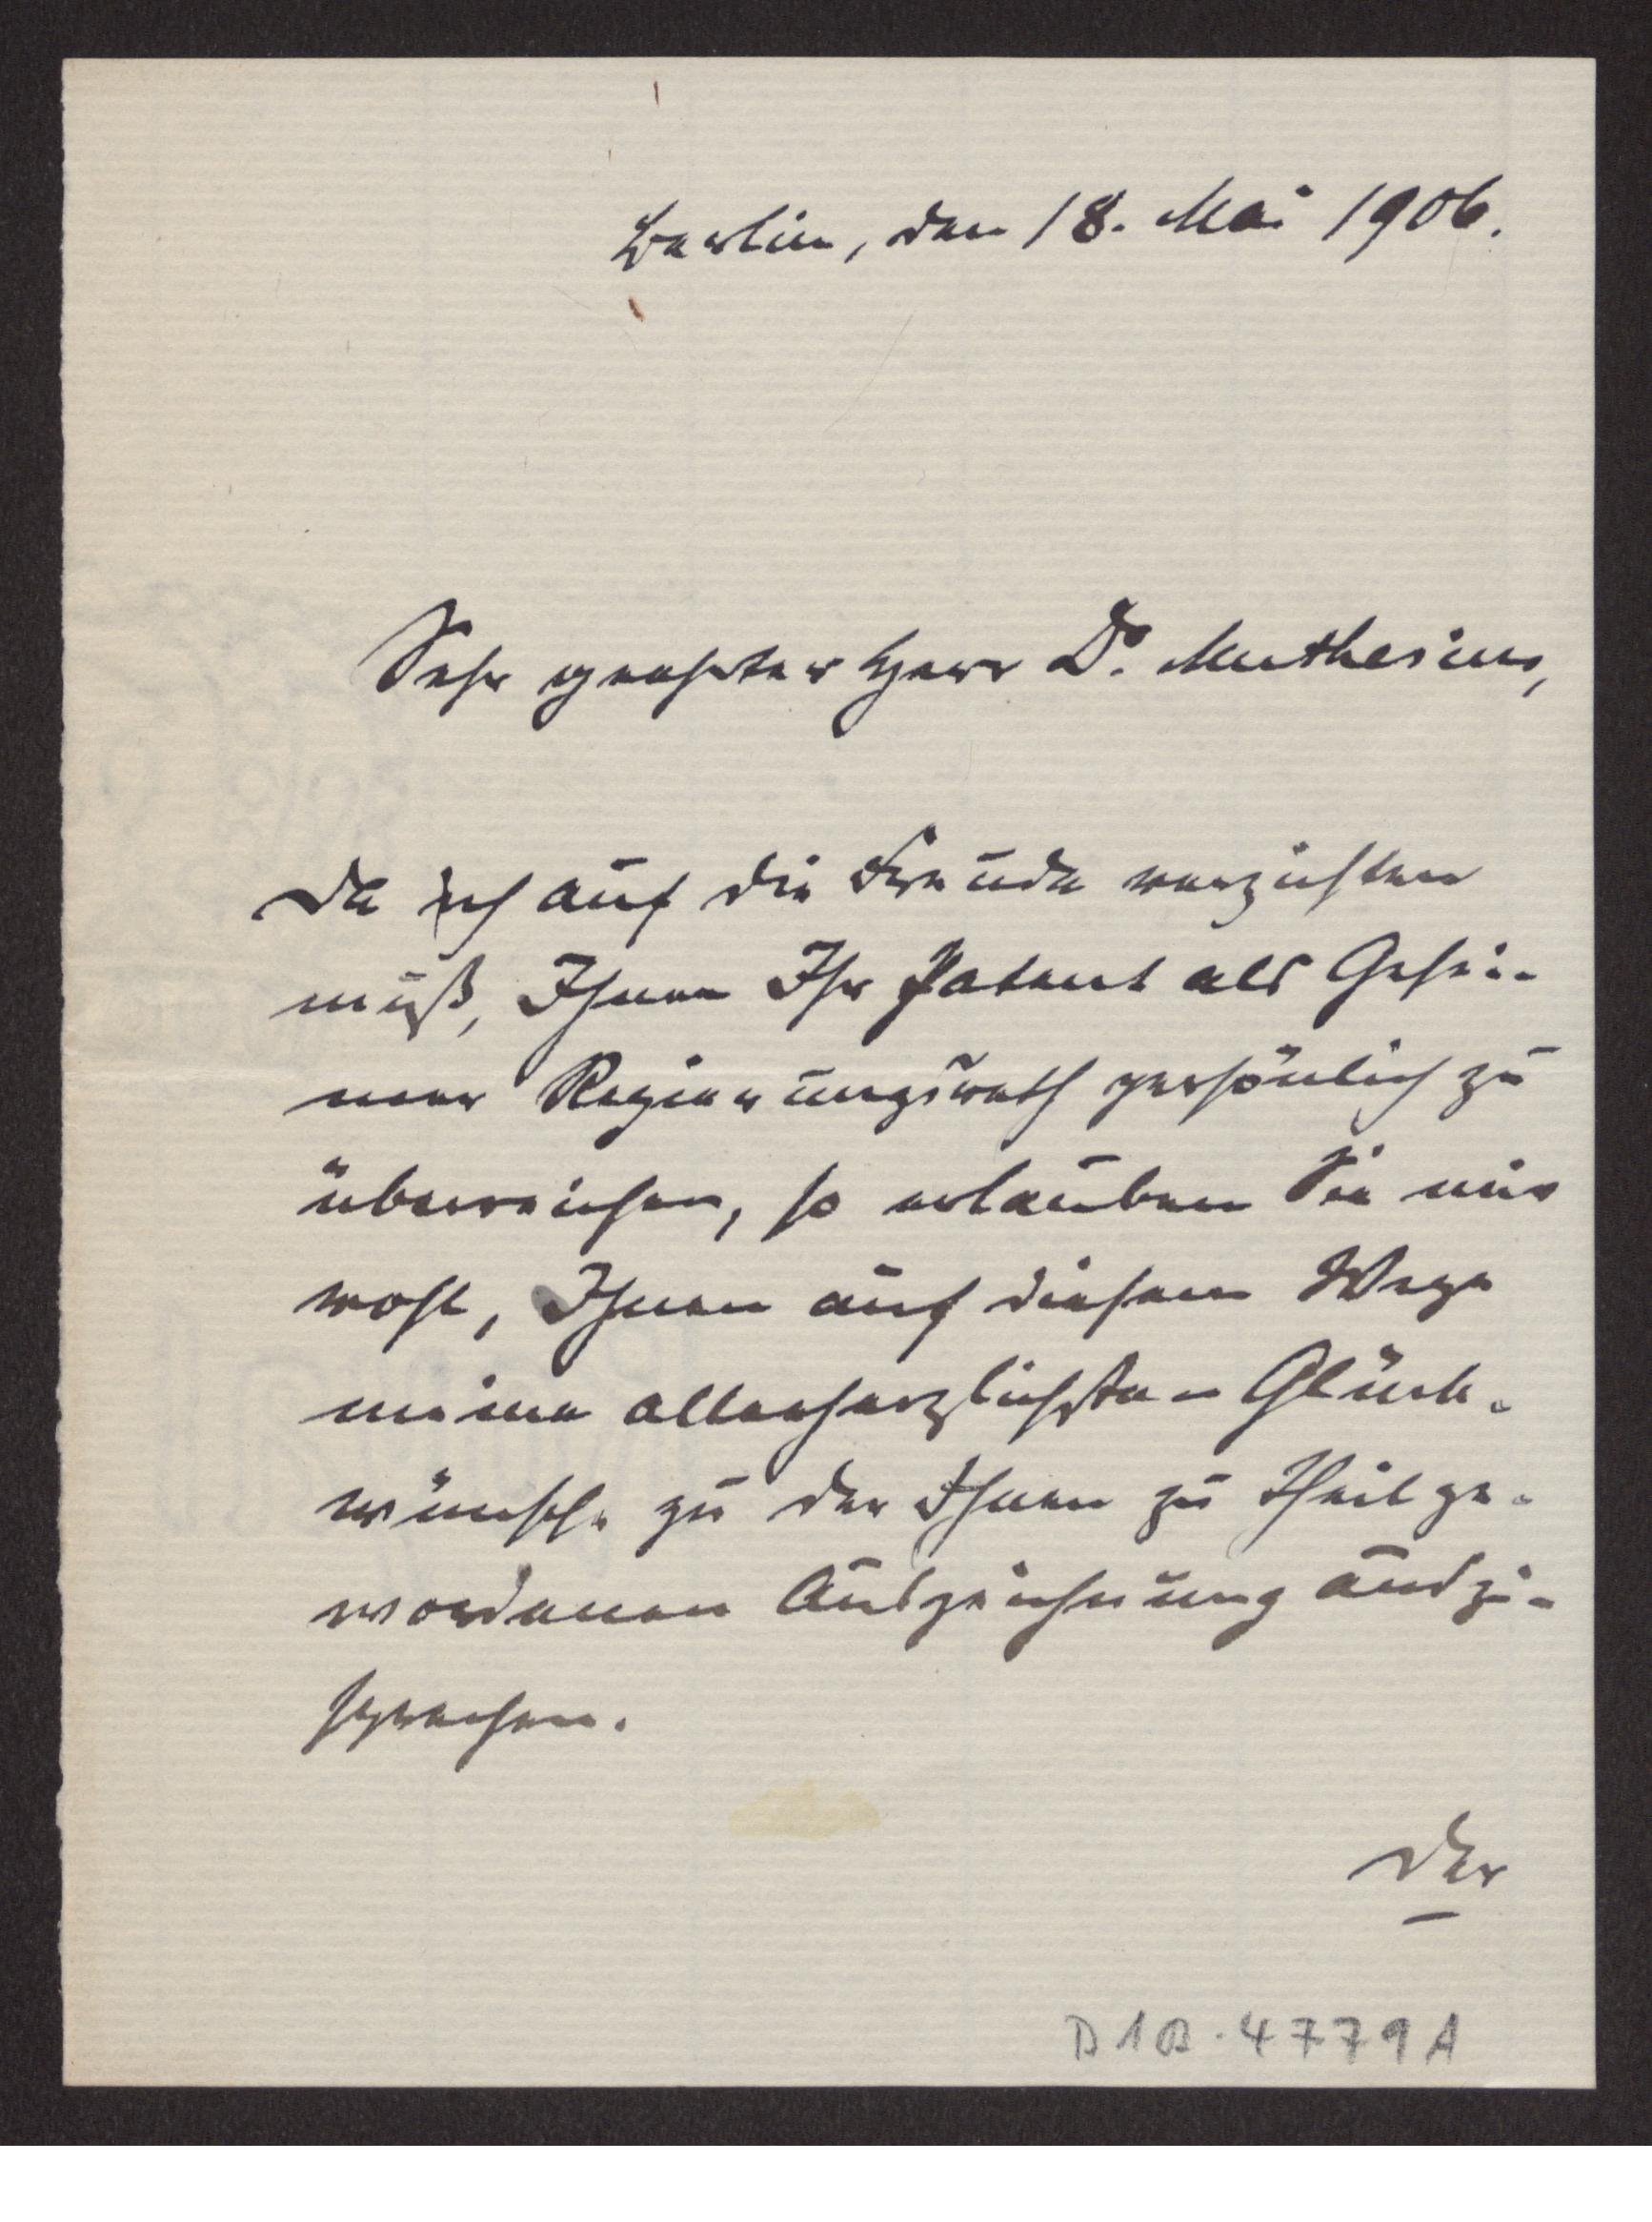 Berlin, den 18. Mai 1906.
Sehr geehrter Herr Dr. Muthesius,
Da ich auf die Freude verzichten
muß, Ihnen Ihr Patent als Gehei-
mer Regierungsrath persönlich zu
überreichen, so erlauben Sie mir
wohl, Ihnen auf diesem Wege
meine allerherzlichsten Glück-
wünsche zu der Ihnen zu Theil ge-
wordenen Auszeichnung auszu-
sprechen.
Der
D 1 B - 4779 A